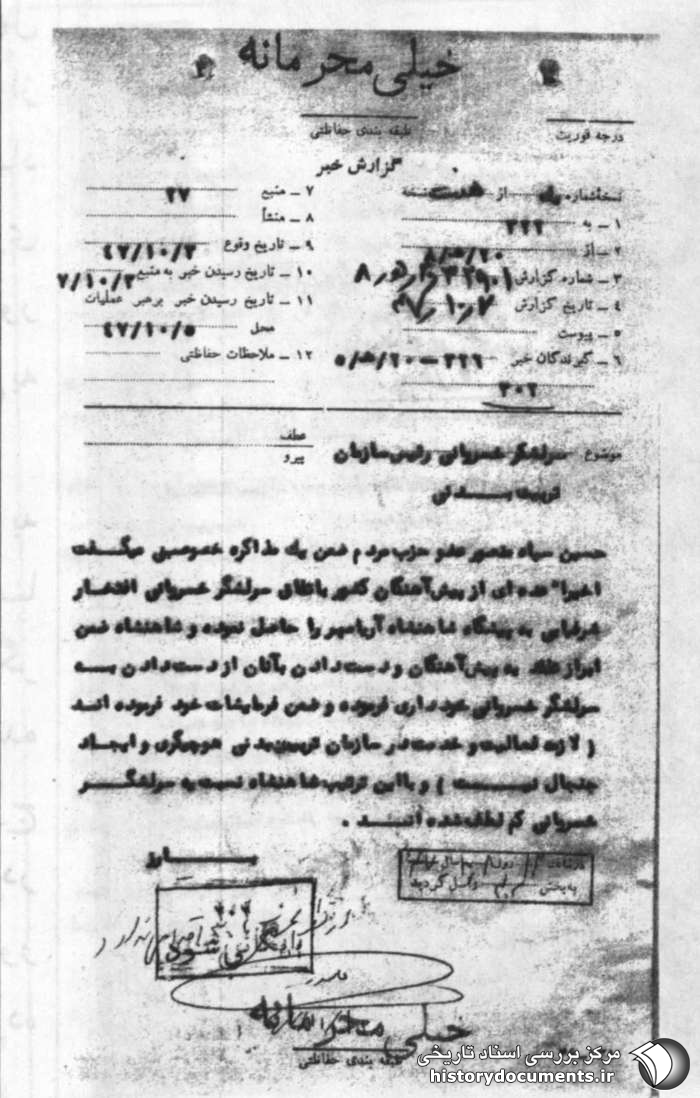 خیلی محرمانه
درجه فوریت
طبقه بندی حفاظتی
گزارش خبر
نسخه شماره از هفت نسخه
۱ ــ به ۳۲۲
۲ ــ از ۲۰/ه/۸
۳ ــ شماره گزارش
۴ ــ تاریخ گزارش ۴۷٫۱۰٫۷
۵ ــ پیوست
۶ ــ گیرندگان خبر ۳۲۶ ــ ۲۰/ه/۵
۳۰۲
۷ ــ منبع ۲۷
۸ ــ منشأ
۹ ــ تاریخ وقوع ۴۷/۱۰/۳
۱۰ ــ تاریخ رسیدن خبر به منبع ۷/۱۰/۳
۱۱ ــ تاریخ رسیدن خبر برهبر عملیات
محل ۴۷/۱۰/۵
۱۲ ــ ملاحظات حفاظتی
موضوع سرلشگر خسروانی رئیس سازمان
تربیت بــدنی
عطف
پیرو
حسین سیاه منصور عضو حزب مردم ضمن یک مذاکره خصوصی میگفت
اخیرا" عده ای از پیش آهنگان کشور باتفاق سرلشگر خسروانی افتخار
شرفیابی به پیشگاه شاهنشاه آریامهر را حاصل نموده و شاهنشاه ضمن
ابراز تفقد به پیش آهنگان و دست دادن بآنان از دست دادن بــه
سرلشگر خسروانی خودداری فرموده و ضمن فرمایشات خود فرموده انــد
( لازمه فعالیت و خدمت در سازمان تربیت بدنی هوچیگری و ایجاد
جنجال نیــست ) و با این ترتیب شاهنشاه نسبت به سرلشگــر
خسروانی کم لطف شده انــد .
بــارز
به بخش گردید
بایگانی شود
خیلی محرمانه
طبقه بندی حفاظتی
مرکز بررسی اسناد تاریخی
historydocuments.ir